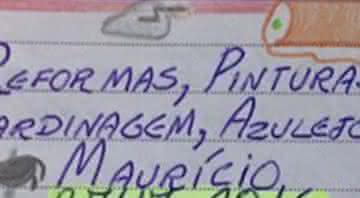 REFORMAS, PINTURAS
JARDINAGEM, AZULEJO
MAURÍCIO